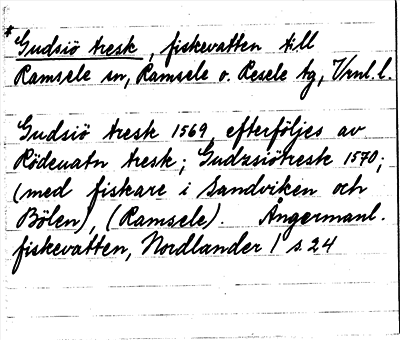 *Gudsiö tresk, fiskevatten till
Ramsele sn, Ramsele o. Resele tg, Vrnl. l.
Gudsiö tresk 1569, efterföljes av
Rödeuatn tresk; Gudzsiötresk 1570;
(med fiskare i Sandviken och
Bölen), (Ramsele). Ångermanl.
fiskevatten, Nordlander 1 s. 24